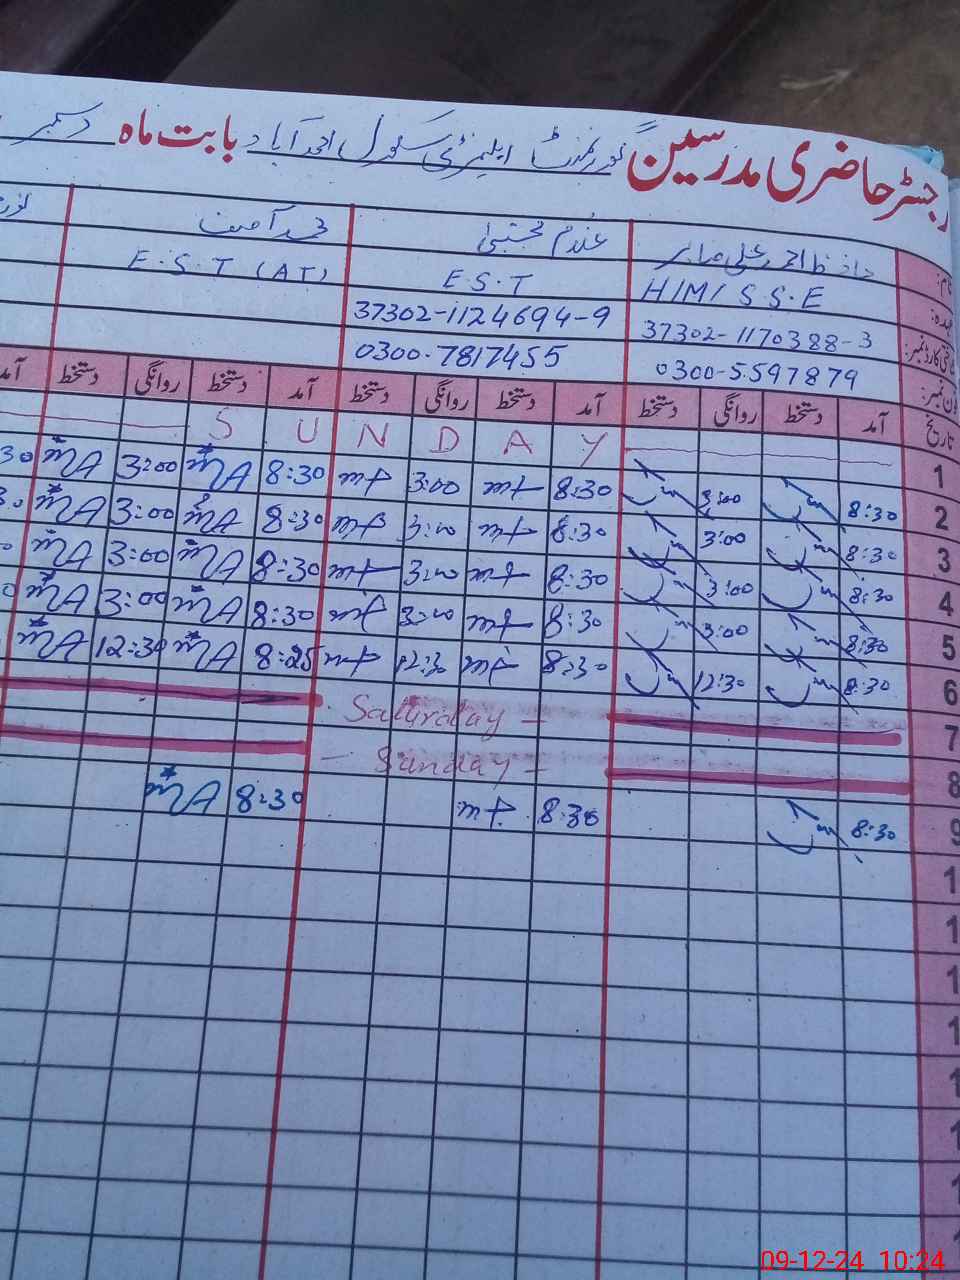 رجسٹر حاضری مدرسین گورنمنٹ ایلیمنٹری سکول احمد آباد بابت ماہ دسمبر
نام: حافظ احمد علی صابر غلام مجتبیٰ محمد آصف
عہدہ: H/M/S.S.E E.S.T E.S.T (AT)
شناختی کارڈ نمبر: 37302-1170388-3 37302-1124694-9
فون نمبر: 0300-5597879 0300-7817455
تاریخ آمد دستخط روانگی دستخط آمد دستخط روانگی دستخط آمد دستخط روانگی دستخط آمد
1 SUNDAY
2 8:30 3:00 8:30 mt 3:00 mt 8:30 3:00
3 8:30 3:00 8:30 mt 3:00 mt 8:30 3:00
4 8:30 3:00 8:30 mt 3:00 mt 8:30 3:00
5 8:30 3:00 8:30 mt 3:00 mt 8:30 3:00
6 8:30 12:30 8:30 mt 12:30 mt 8:25 12:30
7 Saturday
8 Sunday
9 8:30 8:30 mt 8:30
09-12-24 10:24